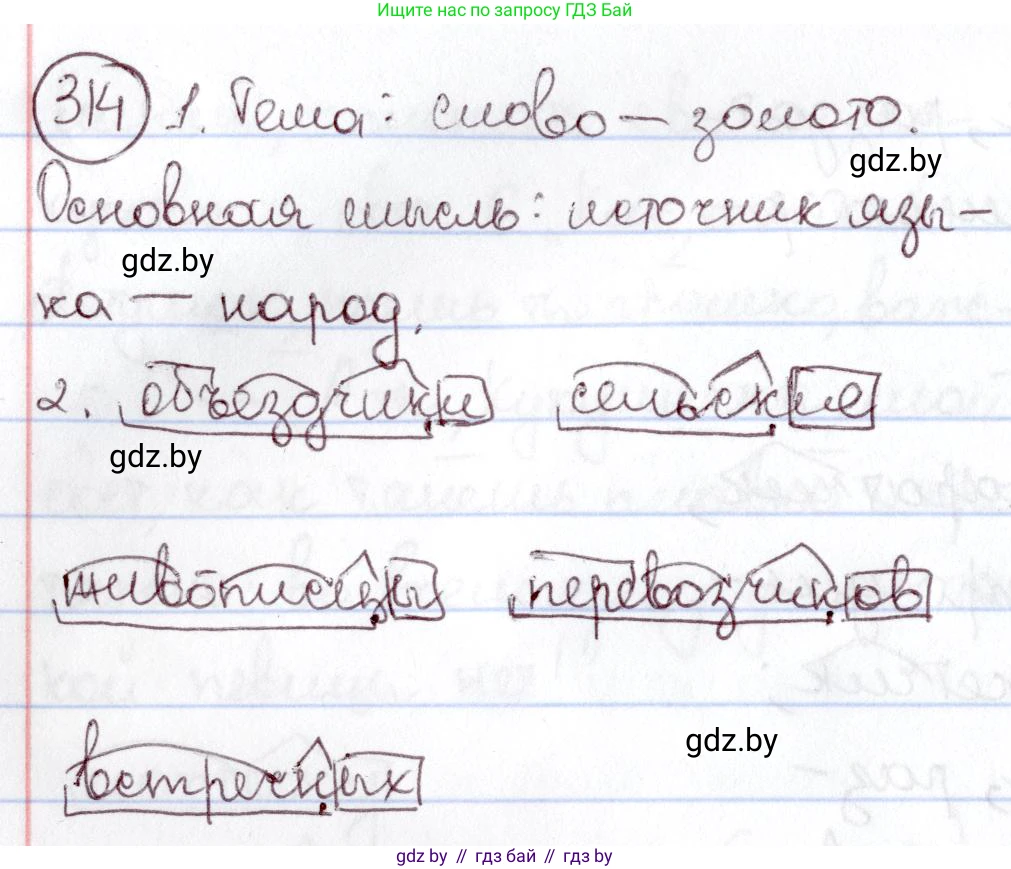 Ищите нас по запросу ГДЗ Бай
314 1. Тема: слово — золото.
gdz.by
Основная мысль: источник язы-
gdz.by
ка — народ.
2. объездчики сельские
gdz.by
живописцы перевозчиков
встречных
gdz.by
gdz by // гдз бай // гдз by